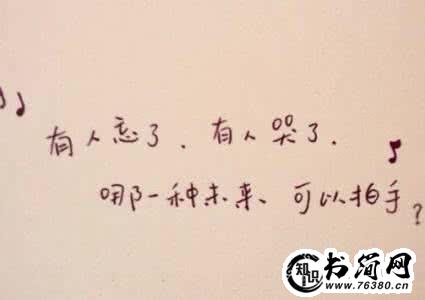 有人忘了、有人哭了.
哪一种未来、可以拍手?
知识
书简网
www.76380.cn